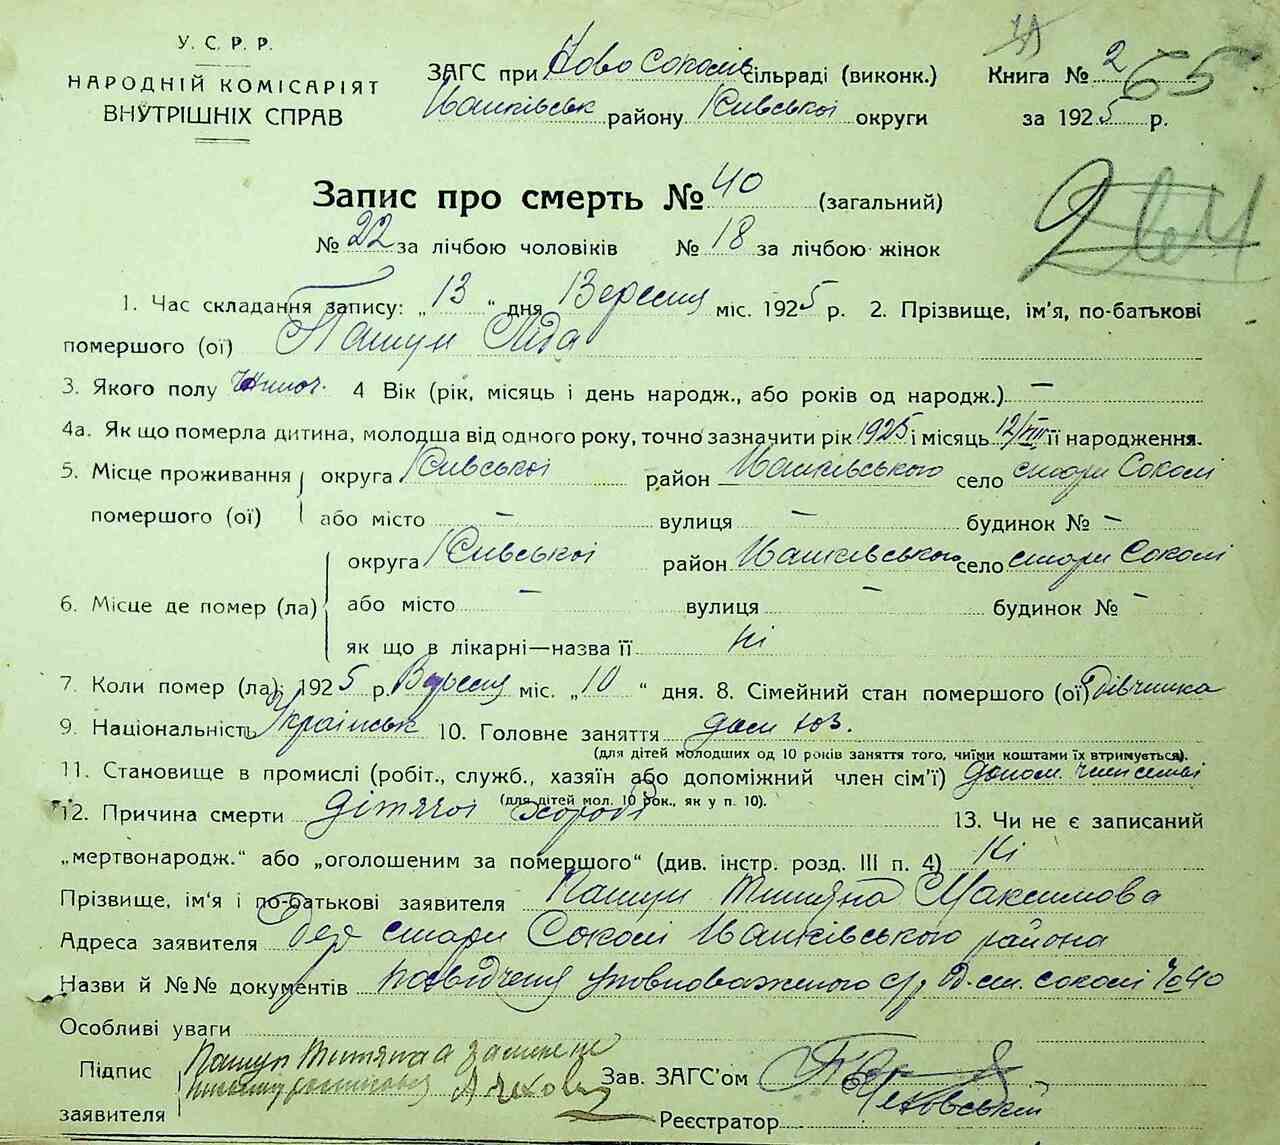 У. С. Р. Р.
НАРОДНІЙ КОМІСАРІЯТ
ВНУТРІШНІХ СПРАВ
ЗАГС при Ново Соколів сільраді (виконк.)
Іванківськ району Київської округи
Книга № 2 65
за 1925 р.
Запис про смерть № 40 (загальний)
№ 22 за лічбою чоловіків № 18 за лічбою жінок
1. Час складання запису: „13“ дня Вересня міс. 1925 р. 2. Прізвище, ім'я, по-батькові
помершого (ої) Пашун Ліда
3. Якого полу 4 Вік (рік, місяць і день народж., або років од народж.) —
4а. Як що померла дитина, молодша від одного року, точно зазначити рік 1925 і місяць 12/VIII її народження.
5. Місце проживання округа Київської район Іванківського село стари Соколі
помершого (ої) або місто — вулиця — будинок № —
округа Київської район Іванківського село стари Соколі
6. Місце де помер (ла) або місто — вулиця — будинок № —
як що в лікарні—назва її Ні
7. Коли помер (ла): 1925 р. Вересня міс. „10“ дня. 8. Сімейний стан помершого (ої) дівчинка
9. Національність Українськ 10. Головне заняття дом хоз.
(для дітей молодших од 10 років заняття того, чиїми коштами їх втримується).
11. Становище в промислі (робіт., служб., хазяїн або допоміжний член сім'ї) допом. член семьї
(для дітей мол. 10 рок., як у п. 10).
12. Причина смерти дітячої хороби 13. Чи не є записаний
„мертвонародж.“ або „оголошеним за помершого“ (див. інстр. розд. III п. 4) Ні
Прізвище, ім'я і по-батькові заявителя Пашун Титяна Максимова
Адреса заявителя дер стари Соколі Іванківського района
Назви й №№ документів посвідченя уповноваженого с/р д. ст. соколі № 40
Особливі уваги
Підпис Пашун Титяна а
заявителя
Зав. ЗАГС'ом
Реєстратор